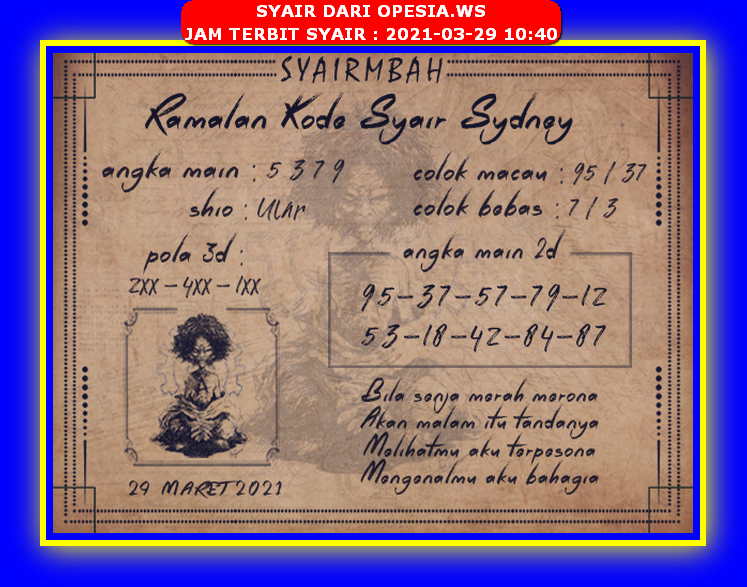 SYAIR DARI OPESIA.WS
JAM TERBIT SYAIR : 2021-03-29 10:40
SYAIRMBAH
Ramalan Kode Syair Sydney
angka main : 5 3 7 9
colok macau : 95 / 37
shio : Ular
colok bebas : 7 / 3
pola 3d :
2XX - 4XX - 1XX
angka main 2d
95-37-57-79-12
53-18-42-84-87
Bila senja merah merona
Akan malam itu tandanya
Melihatmu aku terpesona
Mengenalmu aku bahagia
29 MARET 2021